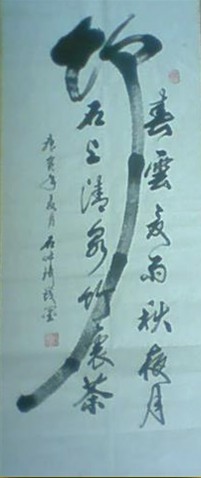 春雲夏雨秋夜月
石上清泉竹裏茶
庚寅年夏月